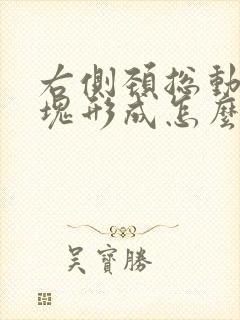 右側頸總動
塊形成怎麼
吳寶勝